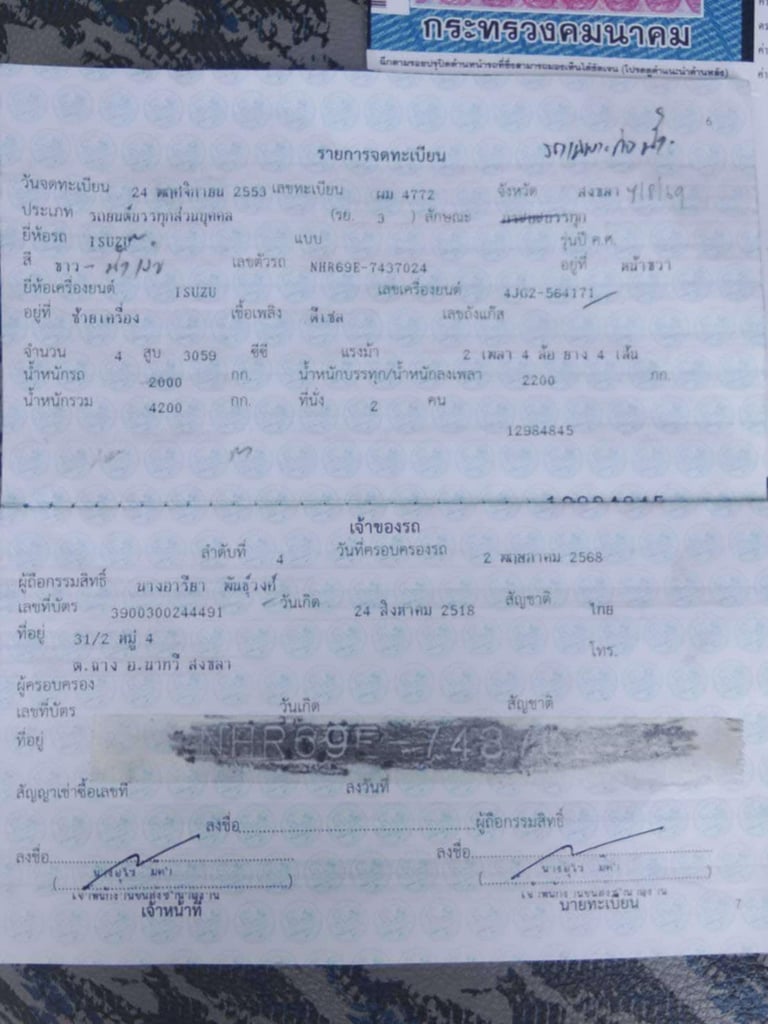 กระทรวงคมนาคม
6
รายการจดทะเบียน
วันจดทะเบียน 24 พฤศจิกายน 2553 เลขทะเบียน ผม 4772 จังหวัด สงขลา
ประเภท รถยนต์บรรทุกส่วนบุคคล (รย. 3 ) ลักษณะ บรรทุก
ยี่ห้อรถ ISUZU แบบ รุ่นปี ค.ศ.
สี ขาว - น้ำเงิน เลขตัวรถ NHR69E-7437024 อยู่ที่ หน้าขวา
ยี่ห้อเครื่องยนต์ ISUZU เลขเครื่องยนต์ 4JG2-564171
อยู่ที่ ซ้ายเครื่อง เชื้อเพลิง ดีเซล เลขถังแก๊ส
จำนวน 4 สูบ 3059 ซีซี แรงม้า 2 เพลา 4 ล้อ ยาง 4 เส้น
น้ำหนักรถ 2000 กก. น้ำหนักบรรทุก/น้ำหนักลงเพลา 2200 กก.
น้ำหนักรวม 4200 กก. ที่นั่ง 2 คน
12984845
เจ้าของรถ
ลำดับที่ 4 วันที่ครอบครองรถ 2 พฤษภาคม 2568
ผู้ถือกรรมสิทธิ์ นางอารียา พันธุ์วงศ์
เลขที่บัตร 3900300244491 วันเกิด 24 สิงหาคม 2518 สัญชาติ ไทย
ที่อยู่ 31/2 หมู่ 4 โทร.
ต.ฉาง อ.นาทวี สงขลา
ผู้ครอบครอง
เลขที่บัตร วันเกิด สัญชาติ
ที่อยู่ NHR69E-7437
สัญญาเช่าซื้อเลขที่ ลงวันที่
ลงชื่อ ผู้ถือกรรมสิทธิ์
ลงชื่อ ลงชื่อ
เจ้าพนักงานขนส่งชำนาญงาน เจ้าพนักงานขนส่งชำนาญงาน
เจ้าหน้าที่ นายทะเบียน
7